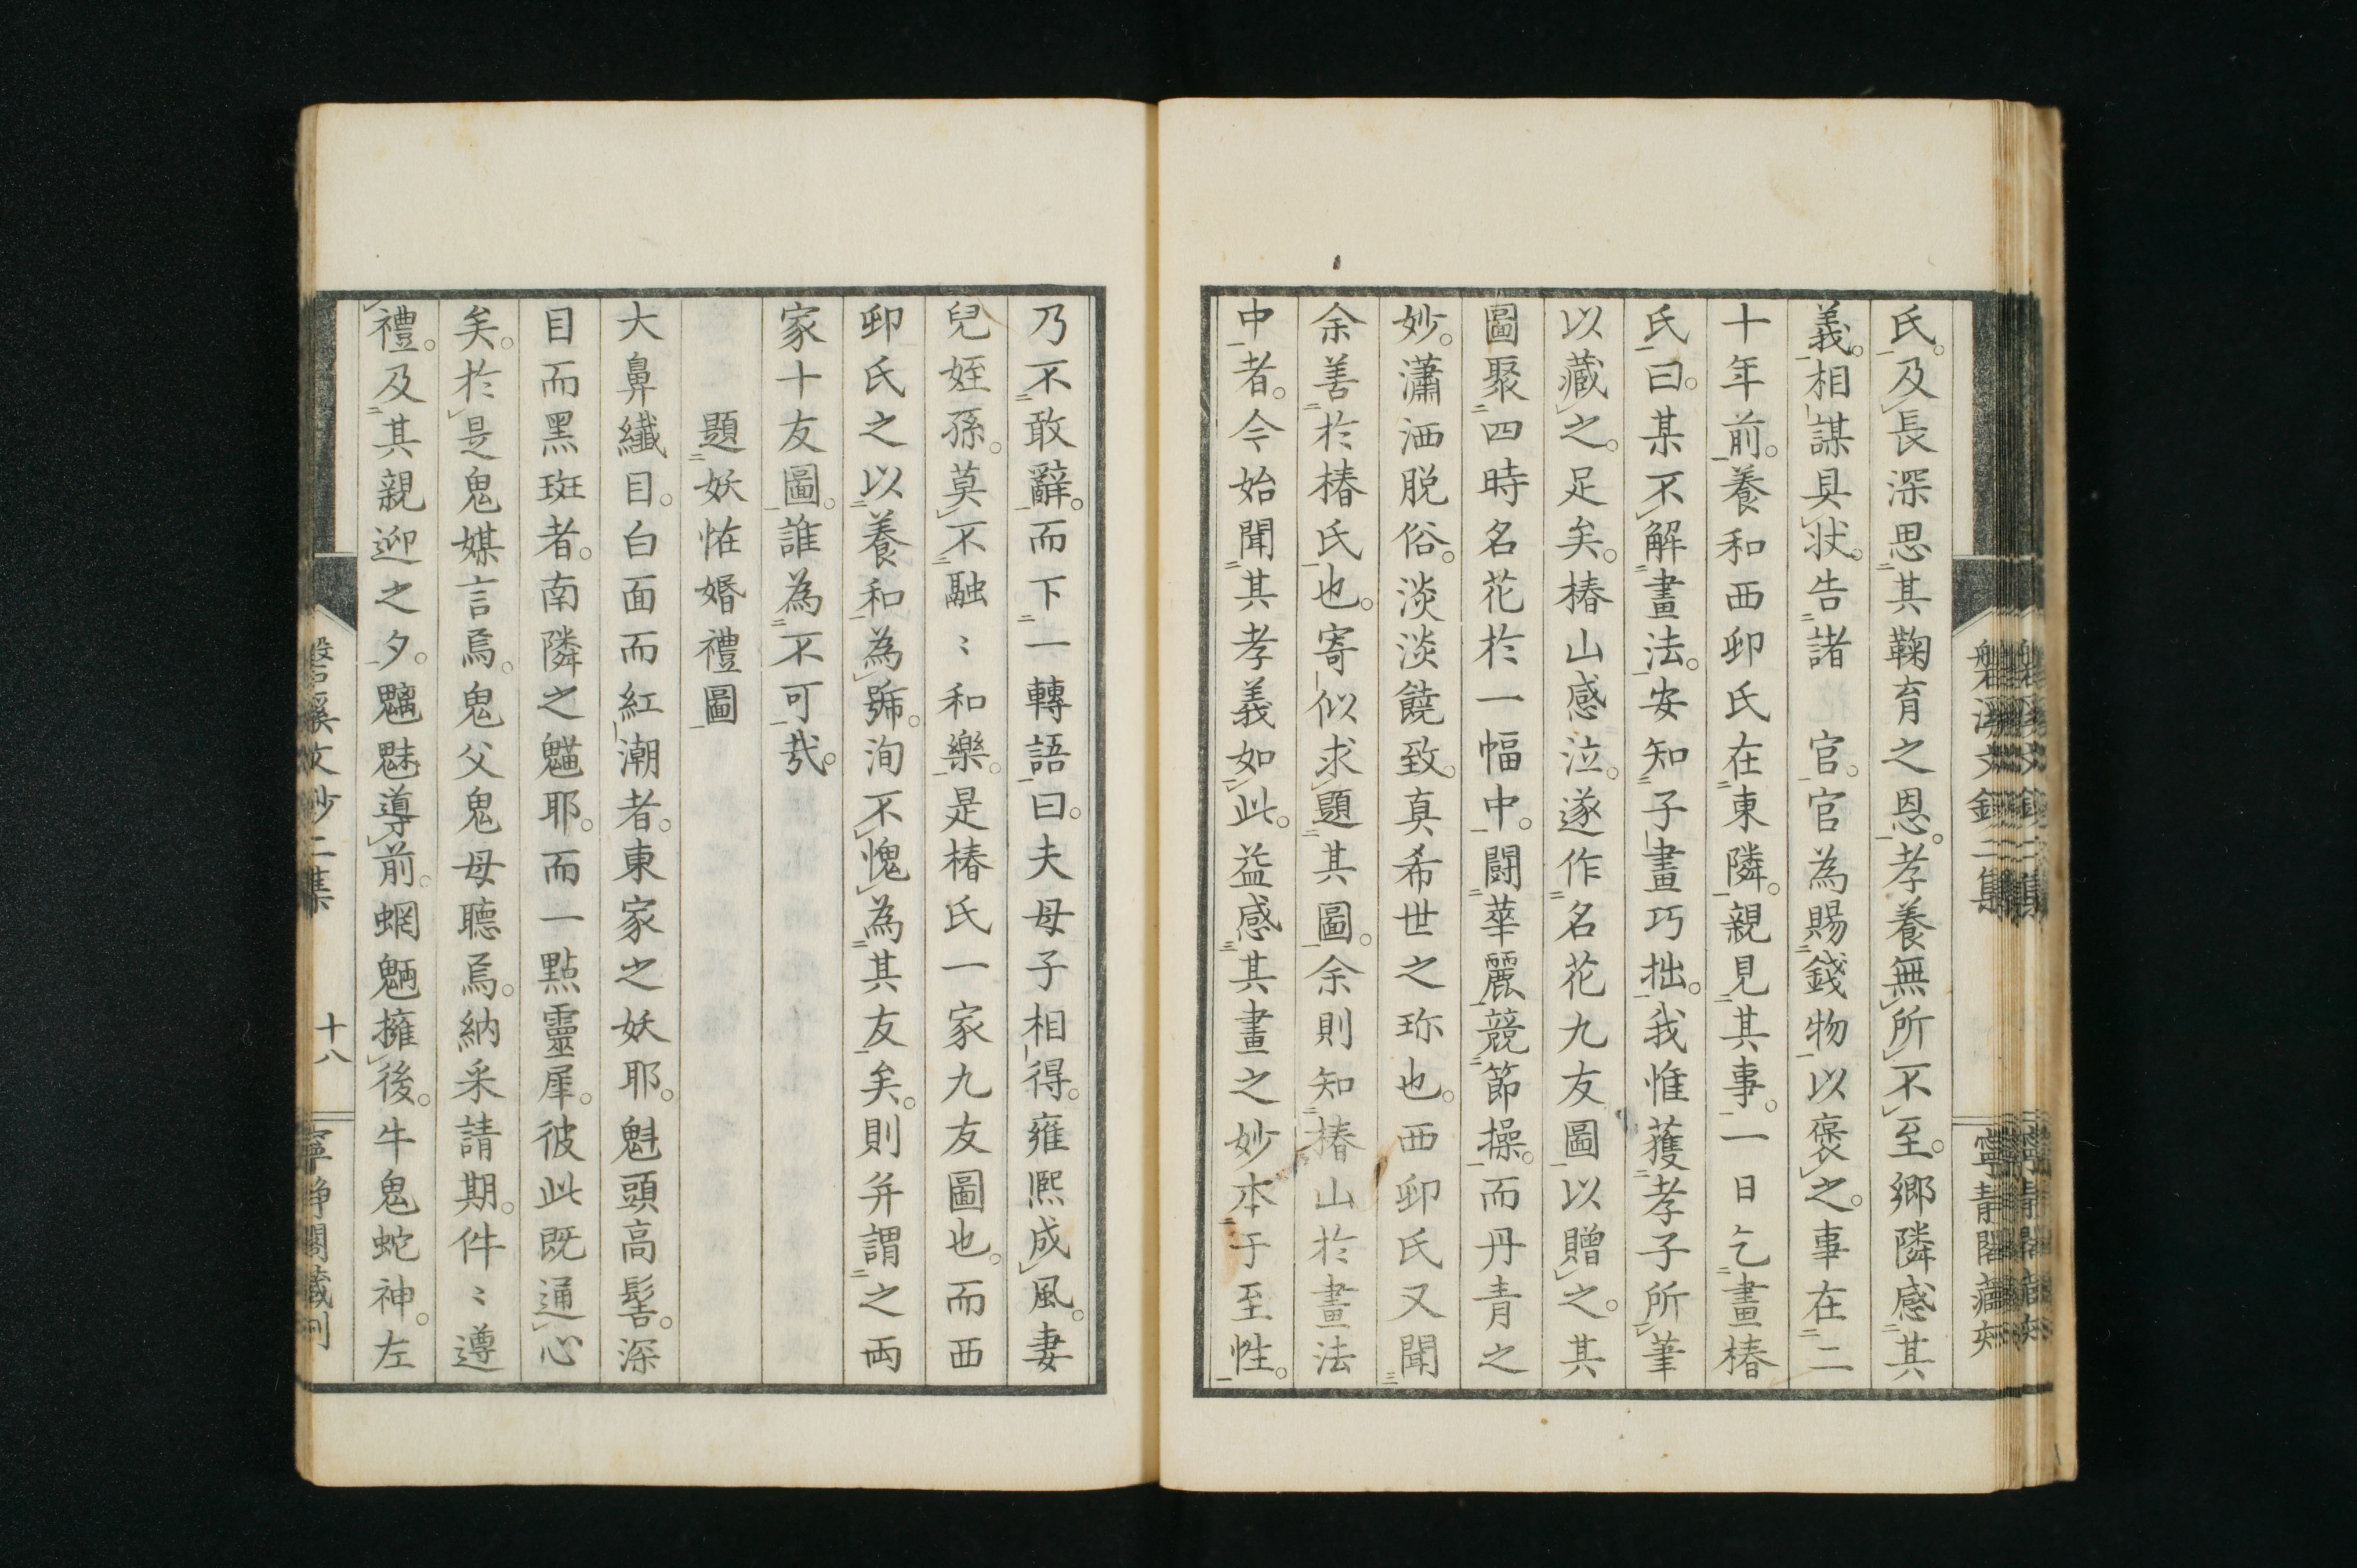 氏。及長深思其鞠育之恩。孝養無所不至。鄉隣感其
義。相謀具狀。告諸 官。官為賜錢物以褒之。事在二
十年前。養和西卯氏在東隣。親見其事。一日乞畫椿
氏曰。某不解畫法。安知子畫巧拙。我惟獲孝子所筆
以藏之。足矣。椿山感泣。遂作名花九友圖以贈之。其
圖聚四時名花於一幅中。鬪華麗競節操。而丹青之
妙。瀟洒脱俗。淡淡饒致。真希世之珎也。西卯氏又聞
余善於椿氏也。寄似求題其圖。余則知椿山於畫法
中者。今始聞其孝義如此。益感其畫之妙本于至性。
乃不敢辭。而下一轉語曰。夫母子相得。雍熈成風。妻
兒姪孫。莫不融〻和樂。是椿氏一家九友圖也。而西
卯氏之以養和為號。洵不愧為其友矣。則并謂之両
家十友圖。誰為不可哉。
題妖恠婚禮圖
大鼻纖目。白面而紅潮者。東家之妖耶。魁頭高髻。深
目而黑斑者。南隣之魈耶。而一點靈犀。彼此既通心
矣。於是鬼媒言焉。鬼父鬼母聽焉。納采請期。件〻遵
禮。及其親迎之夕。魑魅導前。蝄魎擁後。牛鬼蛇神。左
磐溪文鈔二集 十八 寧靜閣藏刊